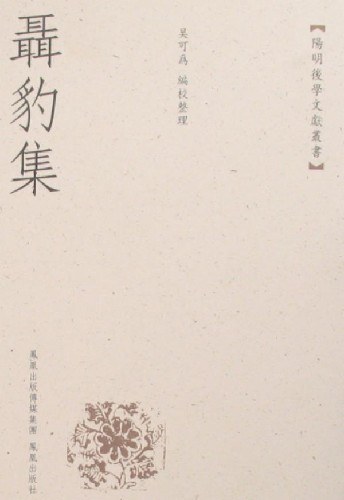 【陽明後學文獻叢書】
吴可為 編校整理
聶豹集
鳳凰出版傳媒集團 鳳凰出版社